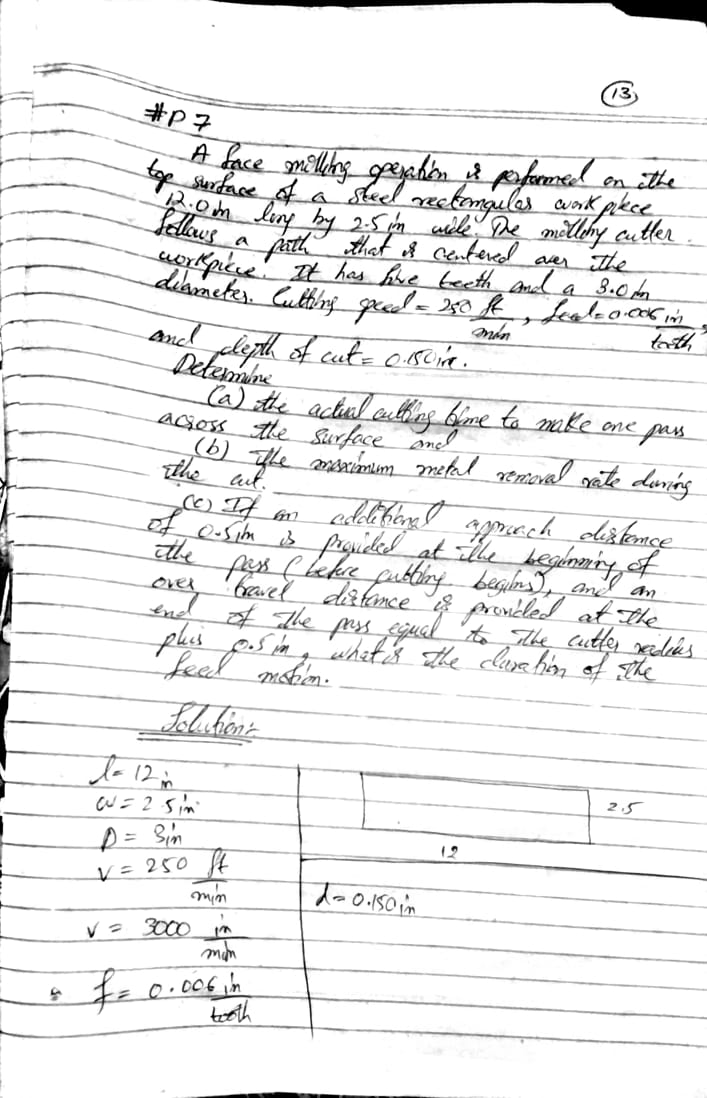 13
#P 7
A face milling operation is performed on the
top surface of a steel rectangular work piece
12.0 in long by 2.5 in wide. The milling cutter
follows a path that is centered over the
workpiece. It has five teeth and a 3.0 in
diameter. Cutting speed = 250 ft/min, feed = 0.006 in/tooth,
and depth of cut = 0.150 in.
Determine
(a) the actual cutting time to make one pass
across the surface and
(b) the maximum metal removal rate during
the cut.
(c) If an additional approach distance
of 0.5 in is provided at the beginning of
the pass (before cutting begins), and an
over travel distance is provided at the
end of the pass equal to the cutter radius
plus 0.5 in, what is the duration of the
feed motion.
Solution:-
l = 12 in
w = 2.5 in
D = 3 in
v = 250 ft/min
v = 3000 in/min
f = 0.006 in/tooth
2.5
12
d = 0.150 in